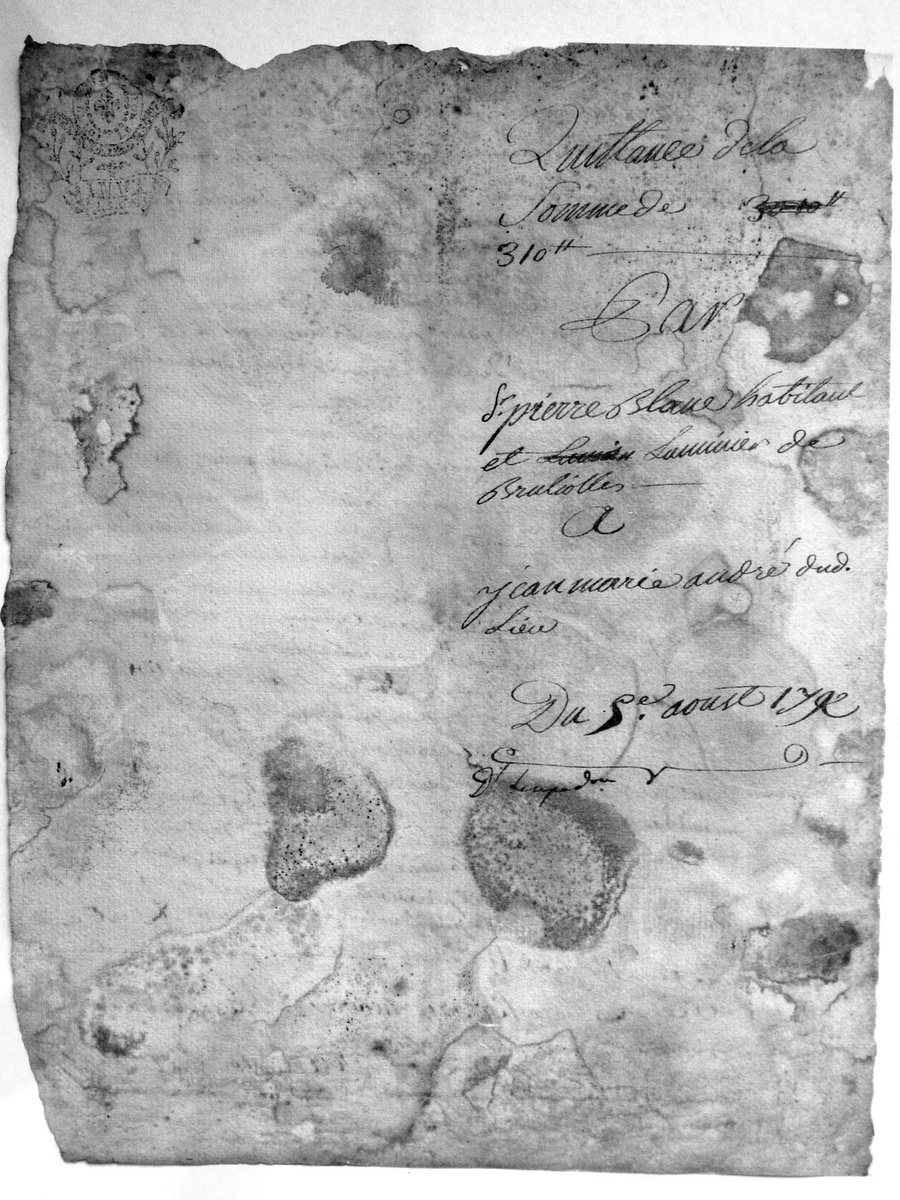 Quittance de la
Somme de 3010ᵗᵗ
310ᵗᵗ
Par
Sʳ pierre Blanc habitant
et Luminier de
Bruliolles
A
jean marie andré dud.
Lieu
Du 5ᵉ. aoust 1792